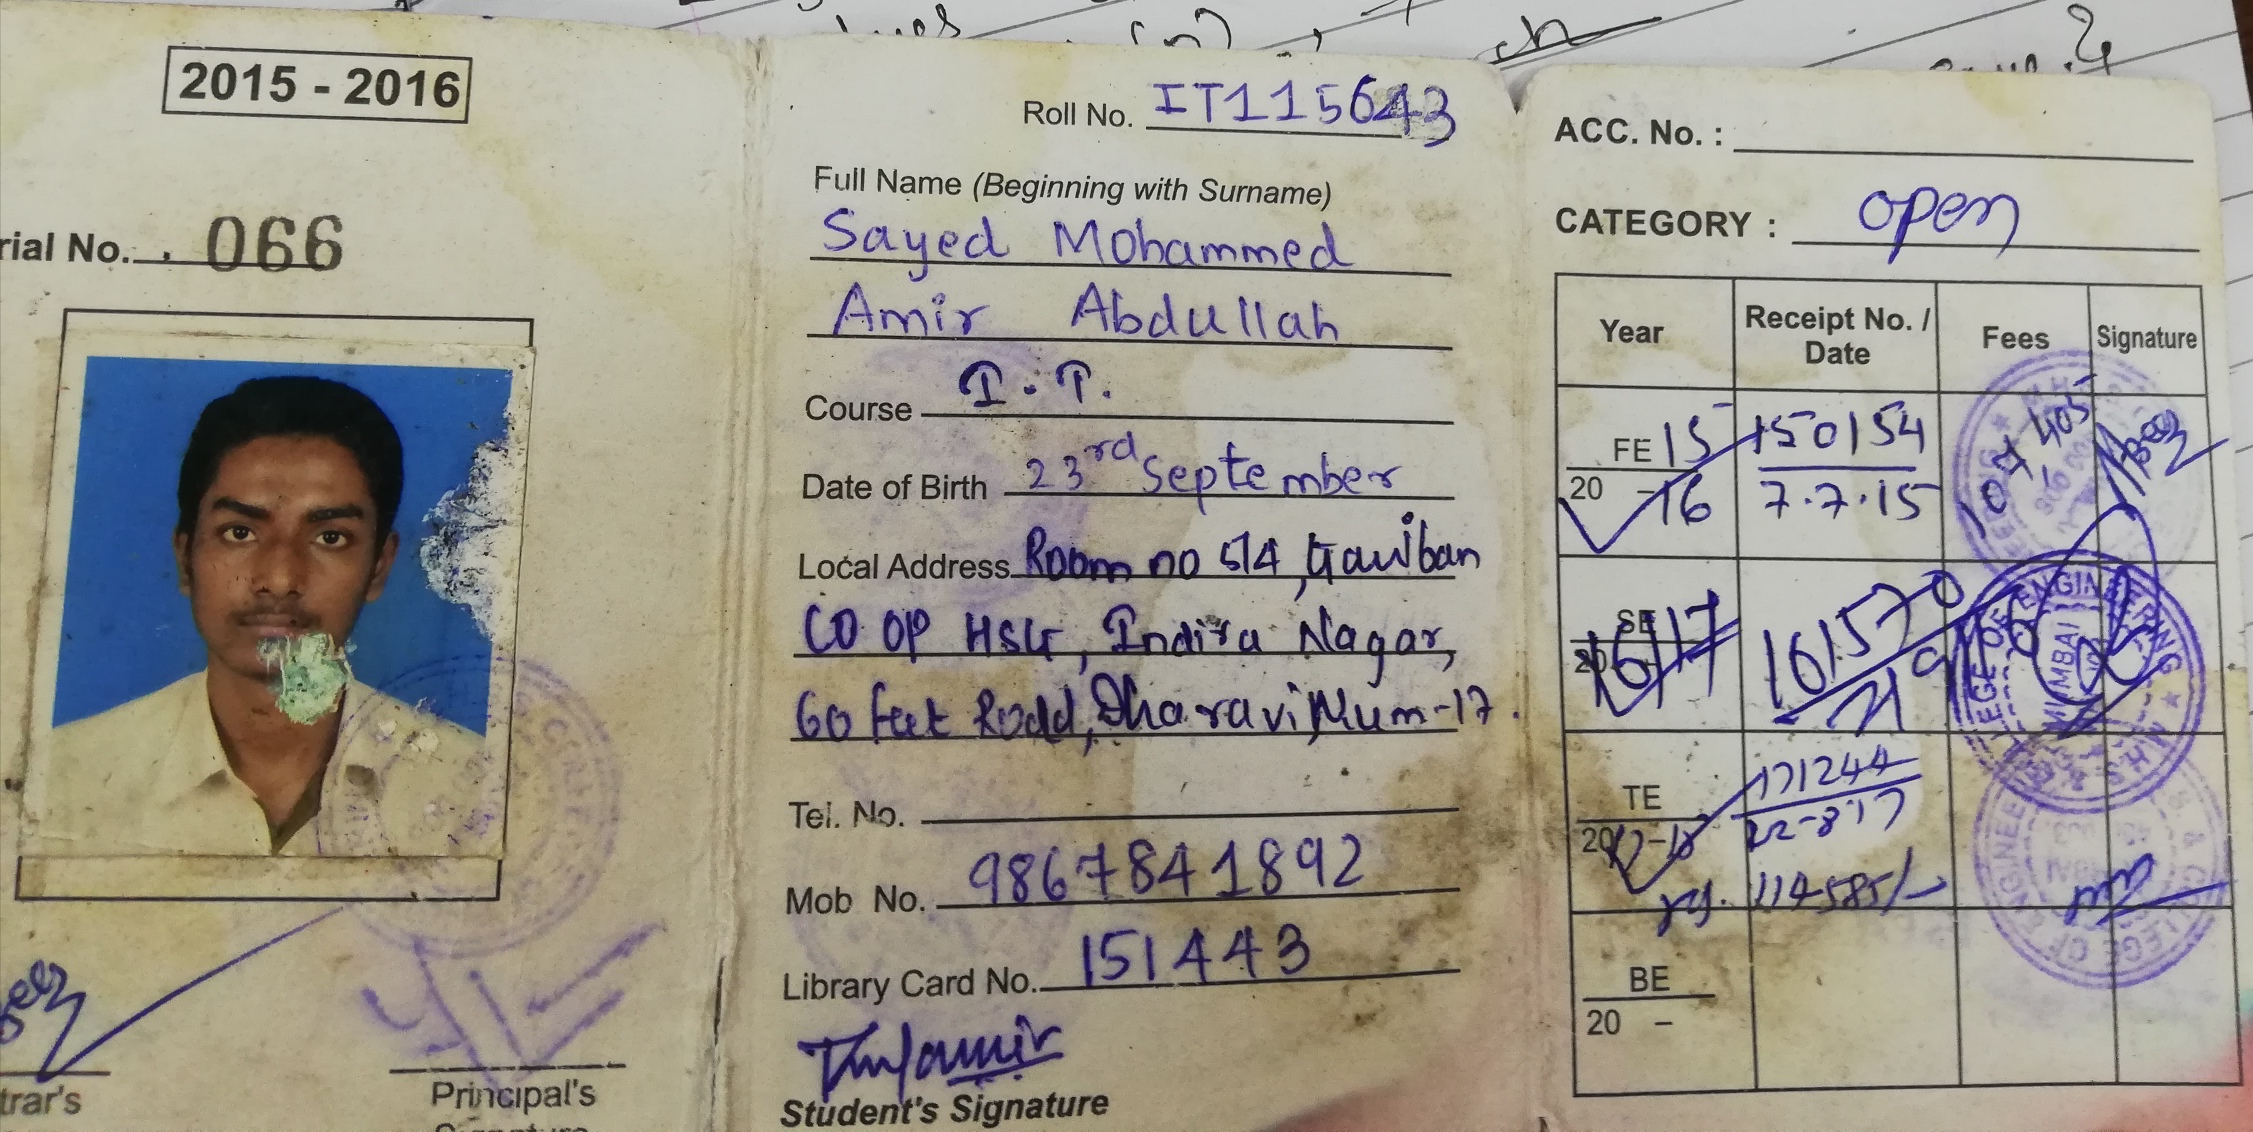 2015 - 2016
rial No. 066
trar's
Principal's
Roll No. IT115643
Full Name (Beginning with Surname)
Sayed Mohammed
Amir Abdullah
Course I.T.
Date of Birth 23rd September
Local Address Room no 514,
CO OP HSG, Indira Nagar,
60 feet Road, Dharavi, Mum-17.
Tel. No.
Mob No. 9867841892
Library Card No. 151443
Student's Signature
ACC. No. :
CATEGORY : open
Year Receipt No. / Date Fees Signature
FE 15 150154
20 -16 7.7.15
SE
16/17 161570
TE 171244
2017-18 22-8-17
114585/-
BE
20 –